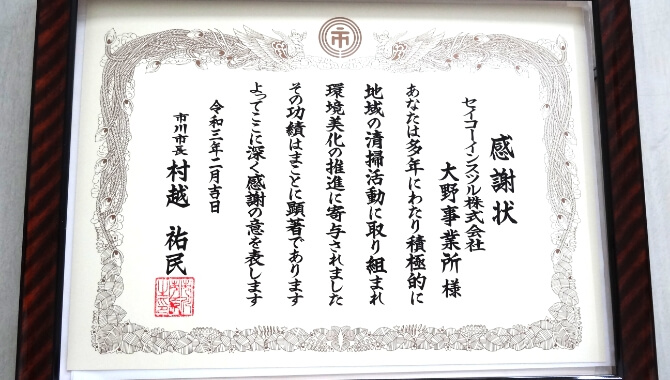 感謝状
セイコーインスツル株式会社
大野事業所 様
あなたは多年にわたり積極的に
地域の清掃活動に取り組まれ
環境美化の推進に寄与されました
その功績はまことに顕著であります
よってここに深く感謝の意を表します
令和三年二月吉日
市川市長 村越 祐民